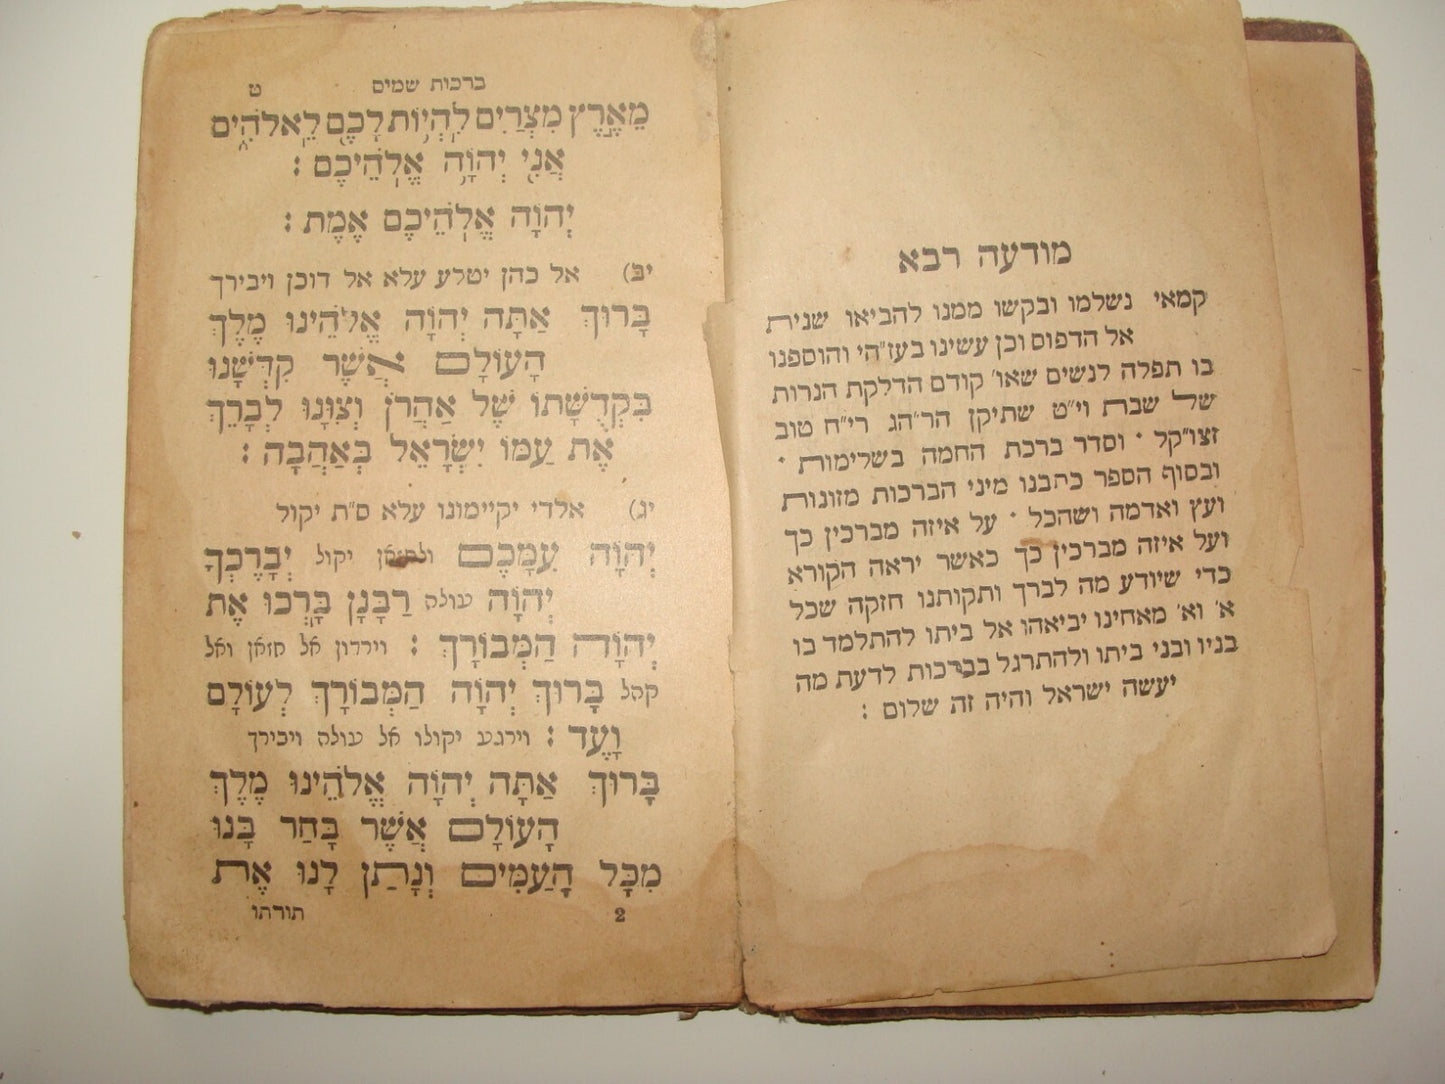 מודעה רבא
קמאי נשלמו ובקשו ממנו להביאו שנית
אל הדפוס וכן עשינו בעז״הי והוספנו
בו תפלה לנשים שאו׳ קודם הדלקת הנרות
של שבת וי״ט שתיקן הר״הג רי״ח טוב
זצו״קל ׃ וסדר ברכת החמה בשלימות ׃
ובסוף הספר כתבנו מיני הברכות מזונות
ועץ ואדמה ושהכל ׃ על איזה מברכין כך
ועל איזה מברכין כך כאשר יראה הקורא
כדי שיודע מה לברך ותקותנו חזקה שכל
א׳ וא׳ מאחינו יביאהו אל ביתו להתלמד בו
בניו ובני ביתו ולהתרגל בברכות לדעת מה
יעשה ישראל והיה זה שלום :
ברכות שמים ט
מֵאֶרֶץ מִצְרַיִם לִהְיוֹת לָכֶם לֵאלֹהִים
אֲנִי יְהוָה אֱלֹהֵיכֶם :
יְהוָה אֱלֹהֵיכֶם אֱמֶת :
יב) אל כהן יטלע עלא אל דוכן ויבירך
בָּרוּךְ אַתָּה יְהוָה אֱלֹהֵינוּ מֶלֶךְ
הָעוֹלָם אֲשֶׁר קִדְּשָׁנוּ
בִּקְדֻשָּׁתוֹ שֶׁל אַהֲרֹן וְצִוָּנוּ לְבָרֵךְ
אֶת עַמּוֹ יִשְׂרָאֵל בְּאַהֲבָה :
יג) אלדי יקיימונו עלא ס״ת יקול
יְהוָה עִמָּכֶם ולחזאן יקול יְבָרֶכְךָ
יְהוָה עולה רַבָּנָן בָּרְכוּ אֶת
יְהוָה הַמְּבוֹרָךְ : וירדון אל חזאן ואל
קהל בָּרוּךְ יְהוָה הַמְּבוֹרָךְ לְעוֹלָם
וָעֶד : וירגע יקולו אל עולה ויבירך
בָּרוּךְ אַתָּה יְהוָה אֱלֹהֵינוּ מֶלֶךְ
הָעוֹלָם אֲשֶׁר בָּחַר בָּנוּ
מִכָּל הָעַמִּים וְנָתַן לָנוּ אֶת
2 תורתו